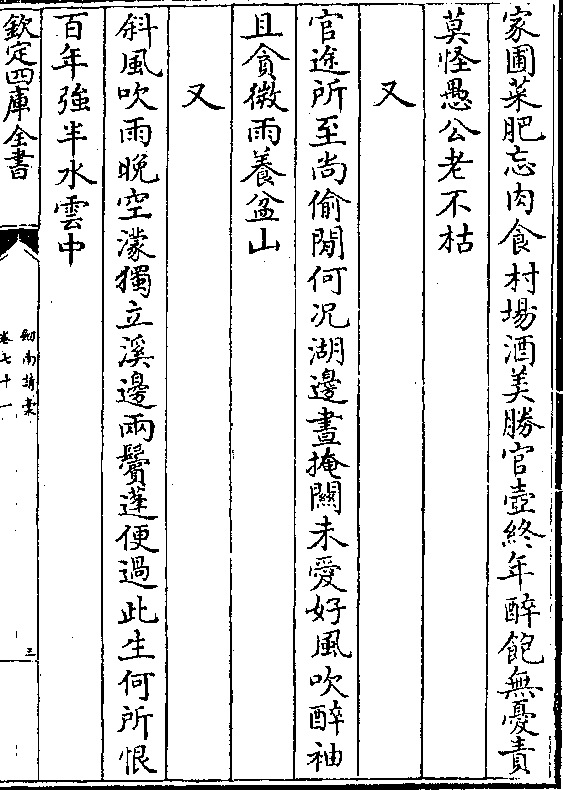 家圃菜肥忘肉食村場酒美勝官壺終年醉飽無憂責
莫怪愚公老不枯
又
官途所至尚偷閒何况湖邊晝掩關未愛好風吹醉袖
且貪微雨養盆山
又
斜風吹雨晚空濛獨立溪邊兩鬢蓬便過此生何所恨
百年強半水雲中
欽定四庫全書
劒南詩稾
卷七十一
三